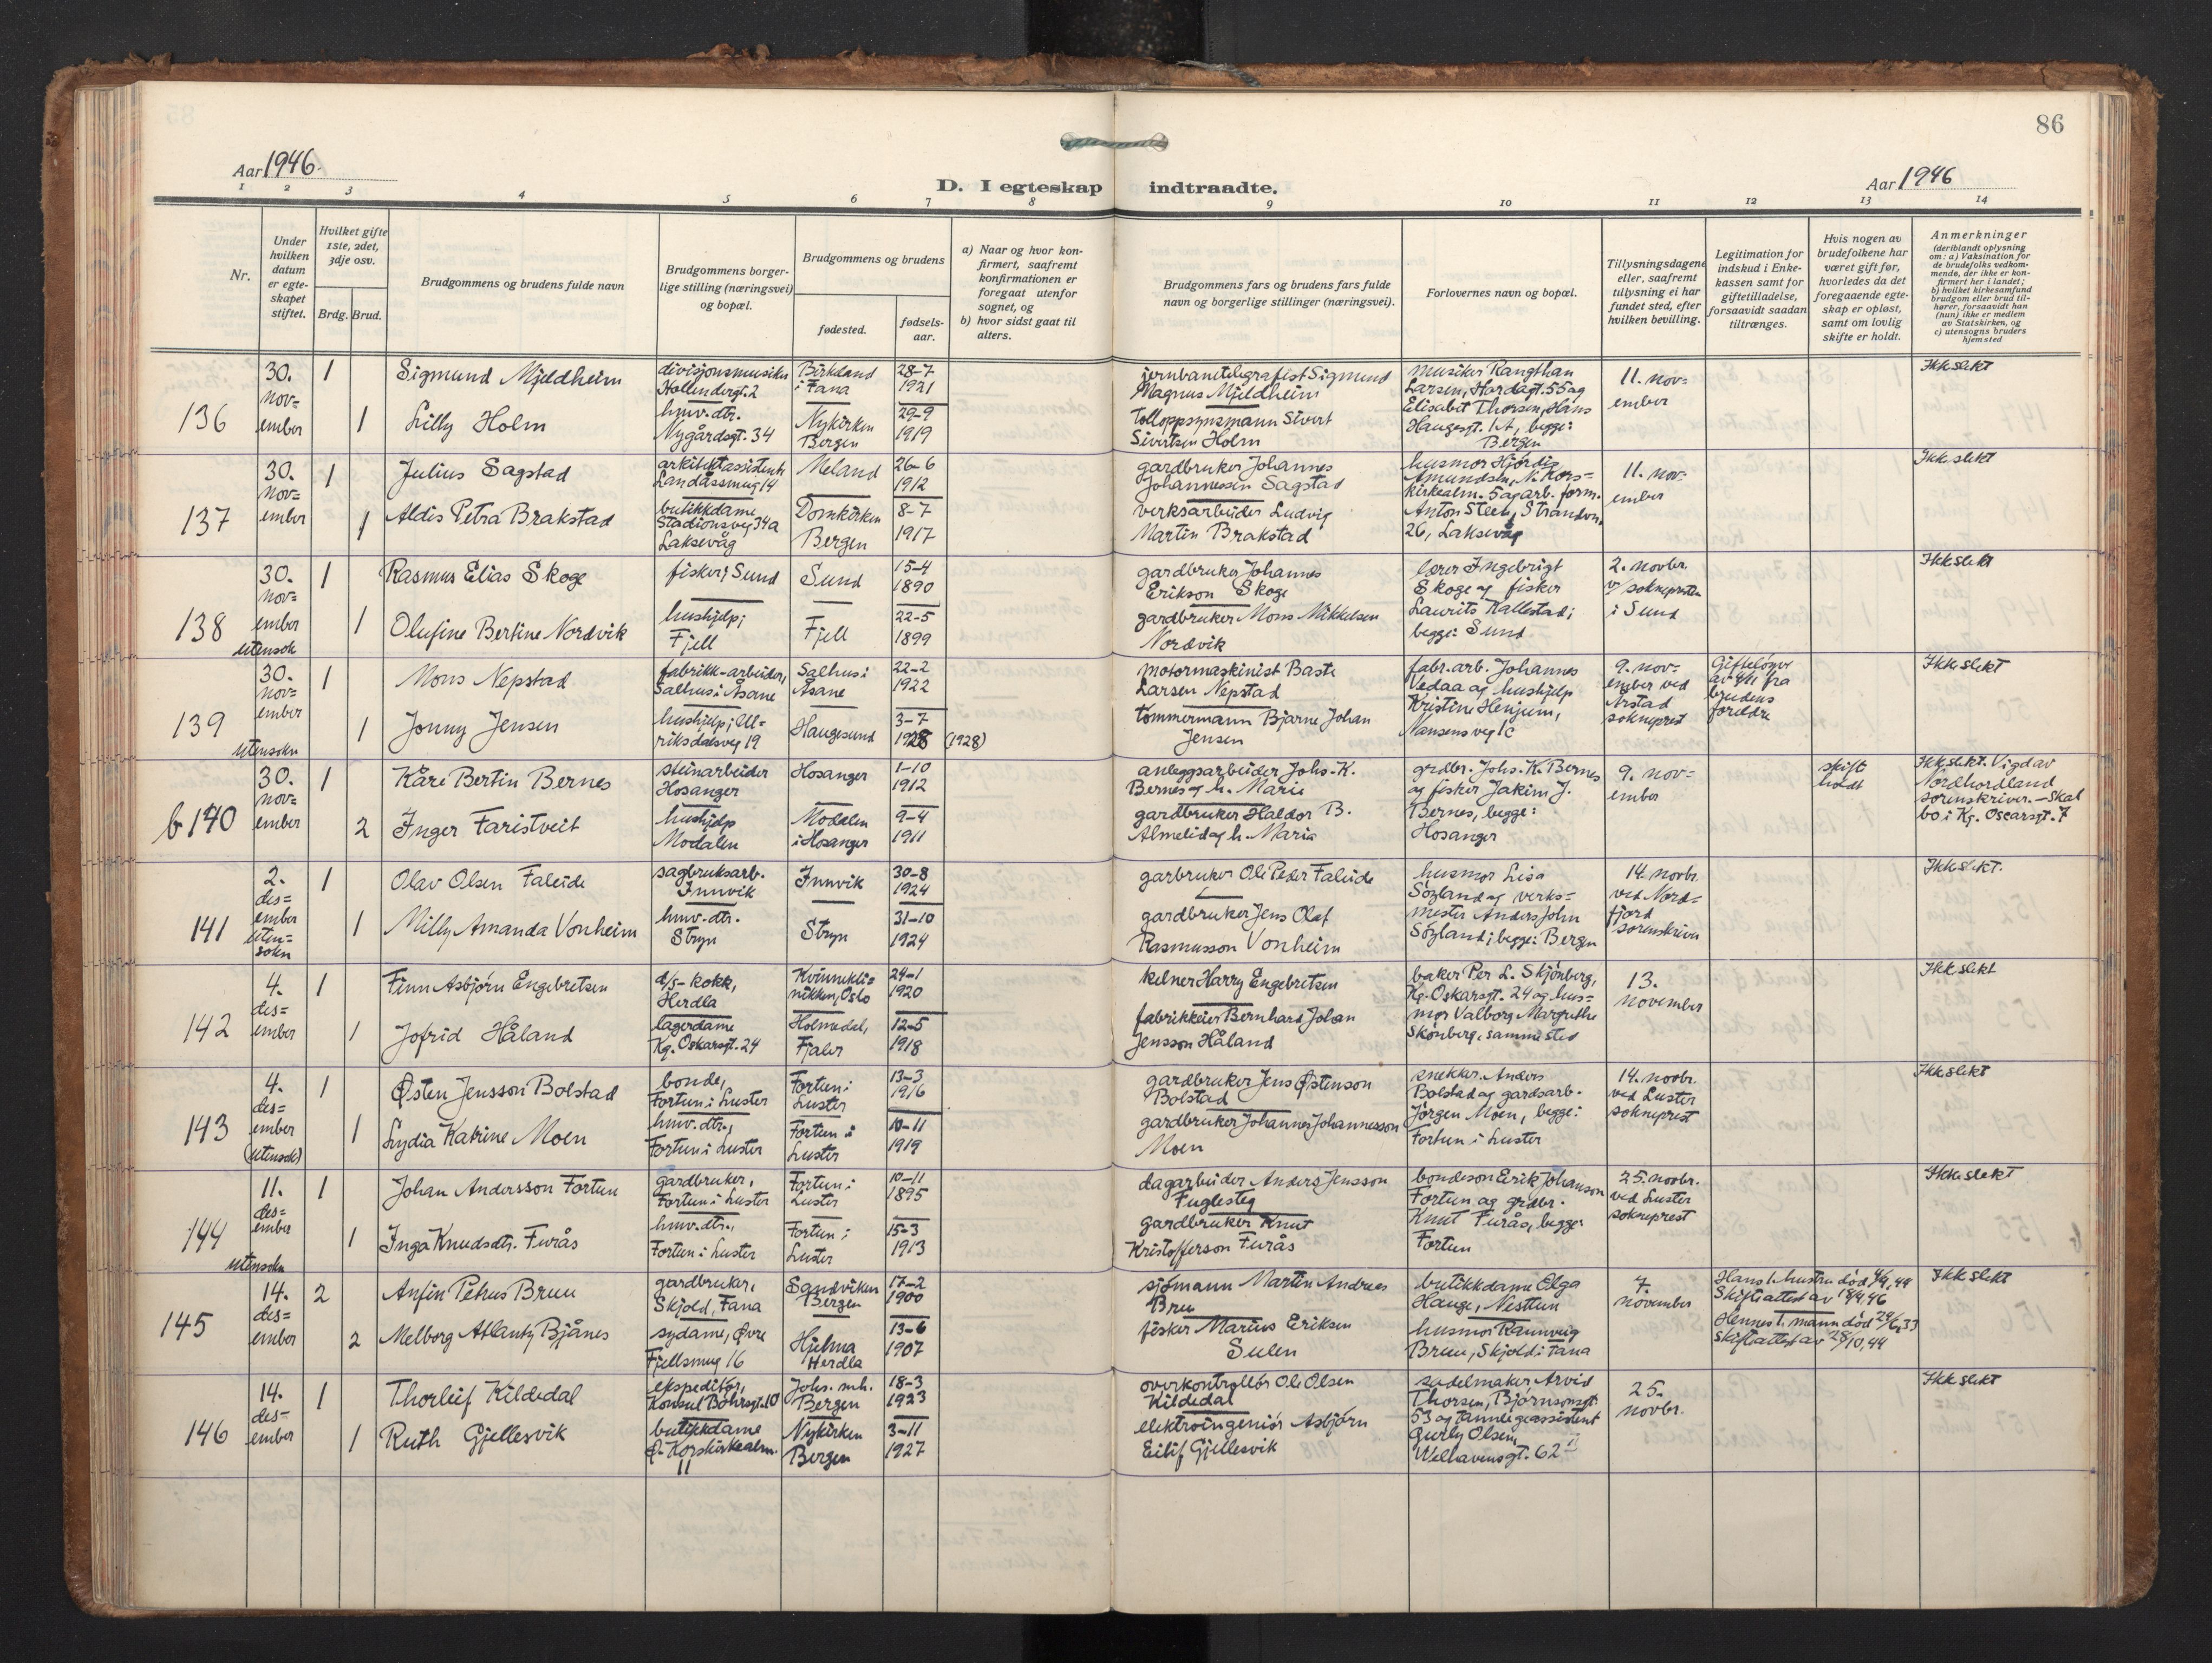 86
Aar 1946.
Aar 1946
D. I egteskap indtraadte.
1 2 3 4 5 6 7 8 9 10 11 12 13 14
Nr.
Under hvilken datum er egteskapet stiftet.
Hvilket gifte 1ste, 2det, 3dje osv.
Brdg. Brud.
Brudgommens og brudens fulde navn
Brudgommens borgerlige stilling (næringsvei) og bopæl.
Brudgommens og brudens
fødested.
fødselsaar.
a) Naar og hvor konfirmert, saafremt konfirmationen er foregaat utenfor sognet, og
b) hvor sidst gaat til alters.
Brudgommens fars og brudens fars fulde navn og borgerlige stillinger (næringsvei).
Forlovernes navn og bopæl.
Tillysningsdagene eller, saafremt tillysning ei har fundet sted, efter hvilken bevilling.
Legitimation for indskud i Enkekassen samt for giftetilladelse, forsaavidt saadan tiltrænges.
Hvis nogen av brudefolkene har været gift før, hvorledes da det foregaaende egteskap er opløst, samt om lovlig skifte er holdt.
Anmerkninger
(deriblandt oplysning om: a) Vaksination for de brudefolks vedkommende, der ikke er konfirmert her i landet; b) hvilket kirkesamfund brudgom eller brud tilhører, forsaavidt han (hun) ikke er medlem av Statskirken, og c) utensogns bruders hjemsted
136
30. november
1
Sigmund Mjeldheim
divisjonsmusiker
Hollendergt. 2
Birkeland
i Fana
28-7
1921
jernbanetelegrafist Sigmund
Magnus Mjeldheim
1
Lilly Holm
hmv. dtr.
Nygårdsgt. 34
Nykirken
Bergen
29-9
1919
Tolloppsynsmann Sivert
Sivertsen Holm
musiker Rangthan
Larsen, Hardagt. 55 og
Elisabet Thorsen, Hans
Haugesgt. 1A, begge:
Bergen
11. nov=
ember
Ikke slekt
137
30. nov=
ember
1
Julius Sagstad
arkitektassistent
Landåssmug 14
Meland
26-6
1912
gardbruker Johannes
Johannessen Sagstad
1
Aldis Petra Brakstad
butikkdame
Stadionsveg 34a
Laksevåg
Domkirken
Bergen
8-7
1917
verksarbeider Ludvig
Martin Brakstad
husmor Hjørdis
Amundsen, N. Kors=
kirkealm. 5 og arb. form.
Anton Steen, Strandvn.
26, Laksevåg
11. nov=
ember
Ikke slekt
138
30. nov=
ember
utensok
1
Rasmus Elias Skoge
fisker; Sund
Sund
15-4
1890
gardbruker Johannes
Erikson Skoge
1
Olufine Bertine Nordvik
hushjelp;
Fjell
Fjell
22-5
1899
gardbruker Mons Mikkelsen
Nordvik
lærer Ingebrigt
Skoge og fisker
Laurits Kallestad;
begge: Sund
2. novbr.
v/ sokneprsten
i Sund
Ikke slekt
139
30. nov=
ember
utensokn
1
Mons Nepstad
fabrikk-arbeider,
Salhus i Åsane
Salhus i
Åsane
22-2
1922
motormaskinist Baste
Larsen Nepstad
1
Jonny Jensen
hushjelp; Ul=
riksdalsveg 19
Haugesund
3-7
1928 (1928)
tømmermann Bjarne Johan
Jensen
fabr. arb. Johannes
Vedaa og hushjelp
Kristine Henjum,
Nansensveg 1c
9. nov=
ember ved
Årstad
sokneprest
Gifteløyve
av 4/11 fra
brudens
foreldre
Ikke slekt
b 140
30. nov=
ember
1
Kåre Bertin Bernes
steinarbeider
Hosanger
Hosanger
1-10
1912
anleggsarbeider Johs. K.
Bernes og h. Marie
2
Inger Faristveit
hushjelp
Modalen
Modalen
i Hosanger
9-4
1911
gardbruker Haldor B.
Almelid og h. Maria
grdbr. Johs. K. Bernes
og fisker Jakim J.
Bernes, begge:
Hosanger
9. nov=
ember
skift
holdt
Ikke slekt. Vigd av
Nordhordland
sorenskriver. – Skal
bo i Kg. Oscarsgt. 7
141
2. des=
ember
uten=
sokn
1
Olav Olsen Faleide
sagbruksarb.
Innvik
Innvik
30-8
1924
garbruker Ole Peder Faleide
1
Milly Amanda Vonheim
hmv. dtr.
Stryn
Stryn
31-10
1924
gardbruker Jens Olaf
Rasmusson Vonheim
husmor Lisa
Søgland og verks=
mester Anders John
Søgland; begge: Bergen
14. novbr.
ved Nord=
fjord
sorenskriver
Ikke slekt.
142
4. des=
ember
1
Finn Asbjørn Engebretsen
d/s- kokk,
Herdla
Kvinnekli=
nikken, Oslo
24-1
1920
kelner Harry Engebretsen
1
Jofrid Håland
lagerdame
Kg. Oskarsgt. 24
Holmedal,
Fjaler
12-5
1918
fabrikkeier Bernhard Johan
Jensson Håland
baker Per L. Skjönberg,
Kg. Oskarsgt. 24 og hus=
mor Valborg Margrethe
Skönberg, sammested
13.
november
Ikke slekt
143
4. des=
ember
(utensok)
1
Østen Jensson Bolstad
bonde,
Fortun i Luster
Fortun i
Luster
13-3
1916
gardbruker Jens Østenson
Bolstad
1
Lydia Katrine Moen
hmv. dtr.,
Fortun i Luster
Fortun i
Luster
10-11
1919
gardbruker Johannes Johannesson
Moen
snekker. Anders
Bolstad og gardsarb.
Jörgen Moen, begge:
Fortun i Luster
14. novbr.
ved Luster
sokneprest
Ikke slekt
144
11. des=
ember
utensokn
1
Johan Andersson Fortun
gardbruker,
Fortun i Luster
Fortun i
Luster
10-11
1895
dagarbeider Anders Jensson
Fuglesteg
1
Inga Knudsdtr. Furås
hmv. dtr.,
Fortun i Luster
Fortun i
Luster
15-3
1913
gardbruker Knut
Kristofferson Furås
bondeson Erik Johanson
Fortun og grdbr.
Knut Furås, begge:
Fortun
25. novbr.
ved Luster
sokneprest
Ikke slekt
145
14. des=
ember
2
Anfin Petrus Bruu
gardbruker,
Skjold, Fana
Sandviken
Bergen
17-2
1900
sjömann Martin Andreas
Bruu
2
Melborg Atlanty Bjånes
sydame, Øvre
Fjellsmug 16
Hjelma
Herdla
13-6
1907
fisker Marius Eriksen
Sulen
butikkdame Olga
Hauge, Nesttun
husmor Raunveig
Bruu, Skjold i Fana
7.
november
Hans 1. hustru död 4/9, 44
Skifteattest av 18/9, 46
Hennes 1. mann död 29/6, 33
skifteattest av 28/10, 44
Ikke slekt
146
14. des=
ember
1
Thorleif Kildedal
ekspeditör,
Konsul Børhsgt. 10
Johs. mh.
Bergen
18-3
1923
overkontrollör Ole Olsen
Kildedal
1
Ruth Gjellesvik
butikkdame
Ø. Korskirkealm.
11
Nykirken
Bergen
3-11
1927
elektroingeniör Asbjörn
Eilif Gjellesvik
sadelmaker Arvid
Thorsen, Bjørnsonsgt.
53 og tannlegeassistent
Gurly Olsen,
Welhavensgt. 62
25.
novbr.
Ikke slekt